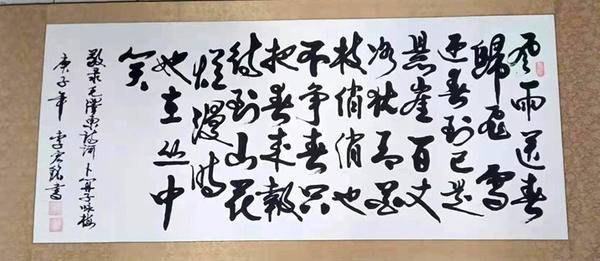 风雨送春
歸飛雪
迎春到已是
悬崖百丈
冰犹有花
枝俏俏也
不争春只
把春来報
待到山花
烂漫时
她在丛中
笑
敬录毛澤東詩词卜算子咏梅
庚子年 李宏書